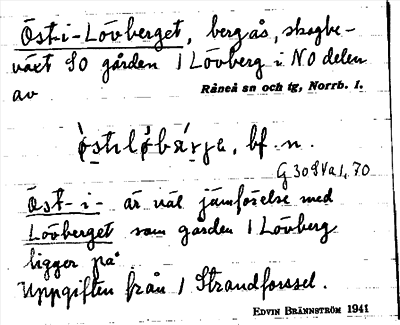 Öst-i-Lövberget, bergås, skogbe-
växt SO gården 1 Lövberg i NO delen
av
Råneå sn och tg, Norrb. l.
bf. n.
G 308 Va 1, 70
Öst-i- är väl jämförelse med
Lövberget som gården 1 Lövberg
ligger på.
Uppgiften från 1 Strandforssel.
EDVIN BRÄNNSTRÖM 1941